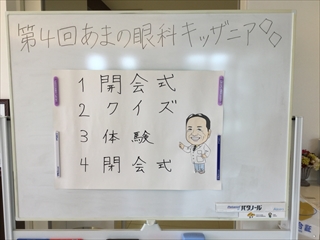 第4回あまの眼科キッザニア
1 開会式
2 クイズ
3 体験
4 閉会式